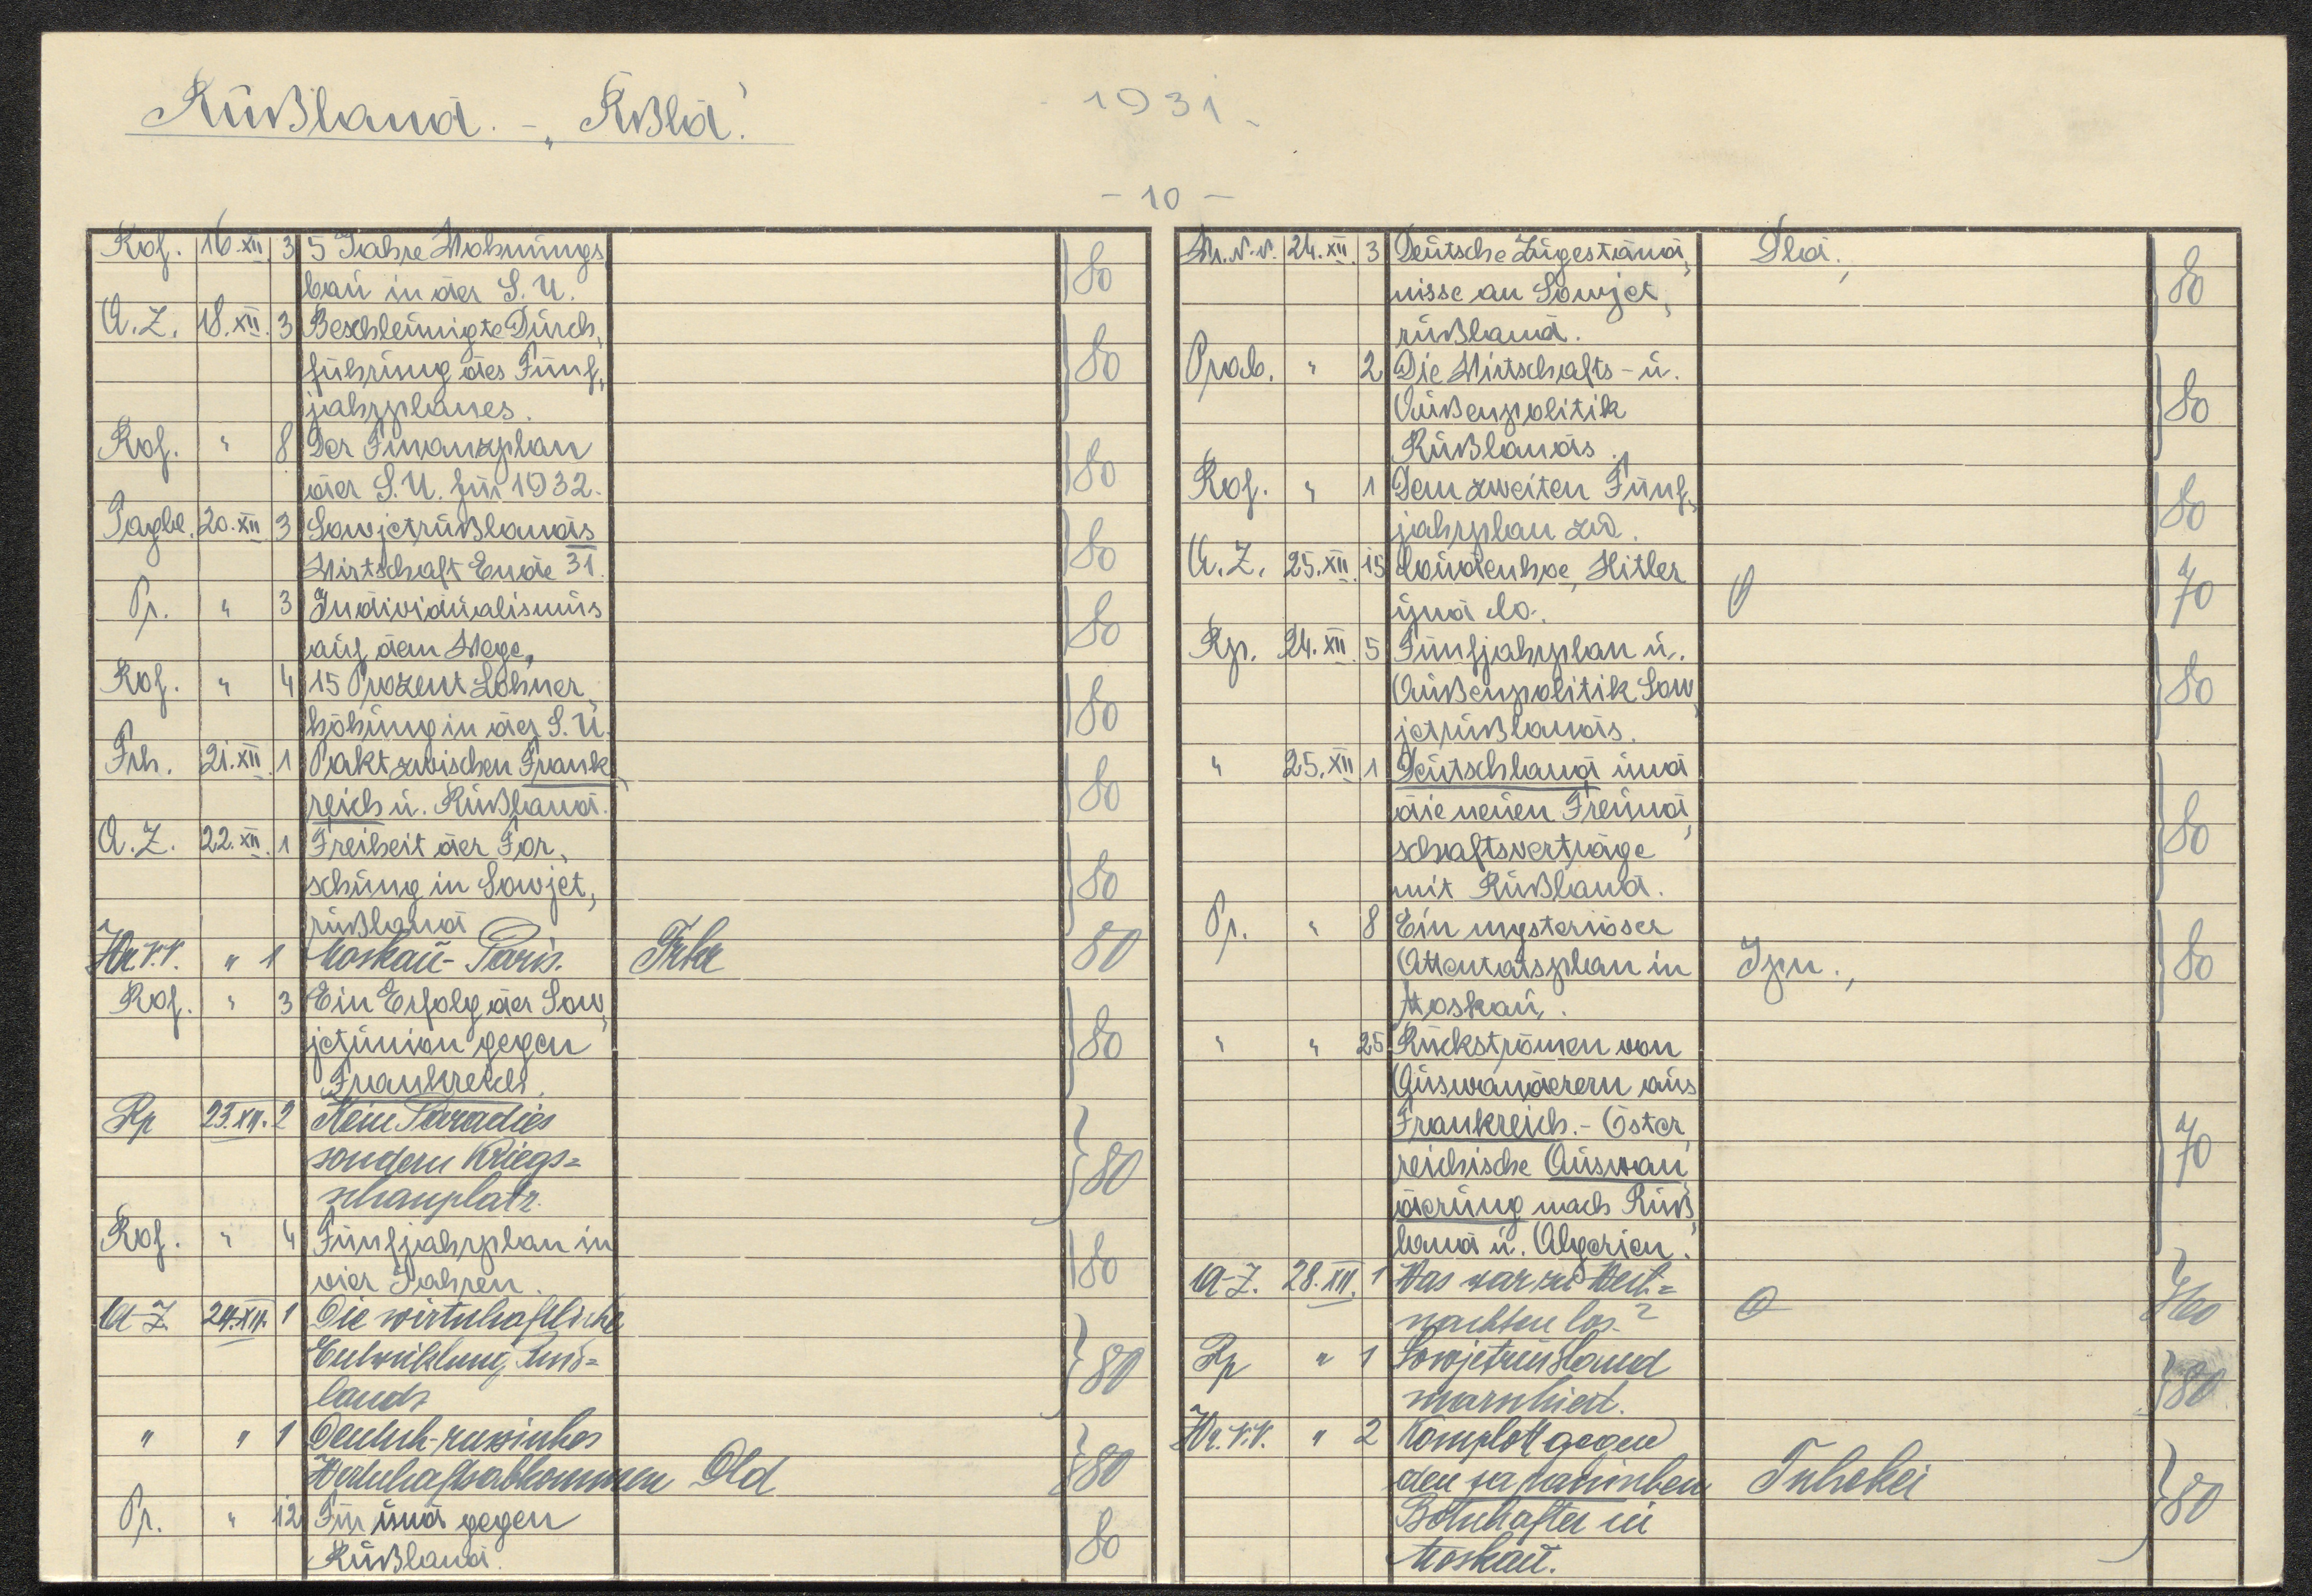 Rußland. - „Rßld.“
1931.
- 10 -
Rof. 16. XII. 3 5 Jahre Wohnungs- 80
bau in der S. U.
A. Z. 18. XII. 3 Beschleunigte Durch- 80
führung des Fünf-
jahrplanes.
Rof. " 8 Der Finanzplan 80
der S. U. für 1932.
Tagbl. 20. XII 3 Sowjetrußlands 80
Wirtschaft Ende 31.
Pr. " 3 Individualismus 80
auf dem Wege.
Rof. " 4 15 Prozent Lohner- 80
höhung in der S. U.
Frh. 21. XII 1 Pakt zwischen Frank- 80
reich u. Rußland.
A. Z. 22. XII. 1 Freiheit der For- 80
schung in Sowjet-
rußland
Wr. N. N. " 1 Moskau - Paris. Frkr 80
Rof. " 3 Ein Erfolg der Sow- 80
jetunion gegen
Frankreich.
Rp 23. XII. 2 Kein Paradies 80
sondern Kriegs=
schauplatz.
Rof. " 4 Fünfjahrplan in 80
vier Jahren.
A-Z. 24. XII. 1 Die wirtschaftliche
Entwicklung Russ= 80
lands
" " 1 Deutsch-russisches
Wirtschaftsabkommen Dld 80
Pr. " 12 Für und gegen 80
Rußland.
Wr. N. N. 24. XII. 3 Deutsche Zugeständ- Dld. 80
nisse an Sowjet-
rußland.
Prob. " 2 Die Wirtschafts- u. 80
Außenpolitik
Rußlands.
Rof. " 1 Dem zweiten Fünf- 80
jahrplan zu.
A. Z. 25. XII. 15 Coudenhoe, Hitler 70
und Co.
Rp. 24. XII. 5 Fünfjahrplan u. 80
Außenpolitik Sow-
jetrußlands.
" 25. XII 1 Deutschland und 80
die neuen Freund-
schaftsverträge
mit Rußland.
Pr. " 8 Ein mysteriöser 80
Attentatsplan in Jpn.
Moskau.
" " 25 Rückströmen von 70
Auswanderern aus
Frankreich. - Öster-
reichische Auswan-
derung nach Ruß-
land u. Algerien.
A-Z. 28. XII. 1 Was war zu Weih=
nachten los?
Rp " 1 Sowjetrussland 80
marschiert.
Wr. N. N. " 2 Komplott gegen
den japanischen Tschekei 80
Botschafter in
Moskau.